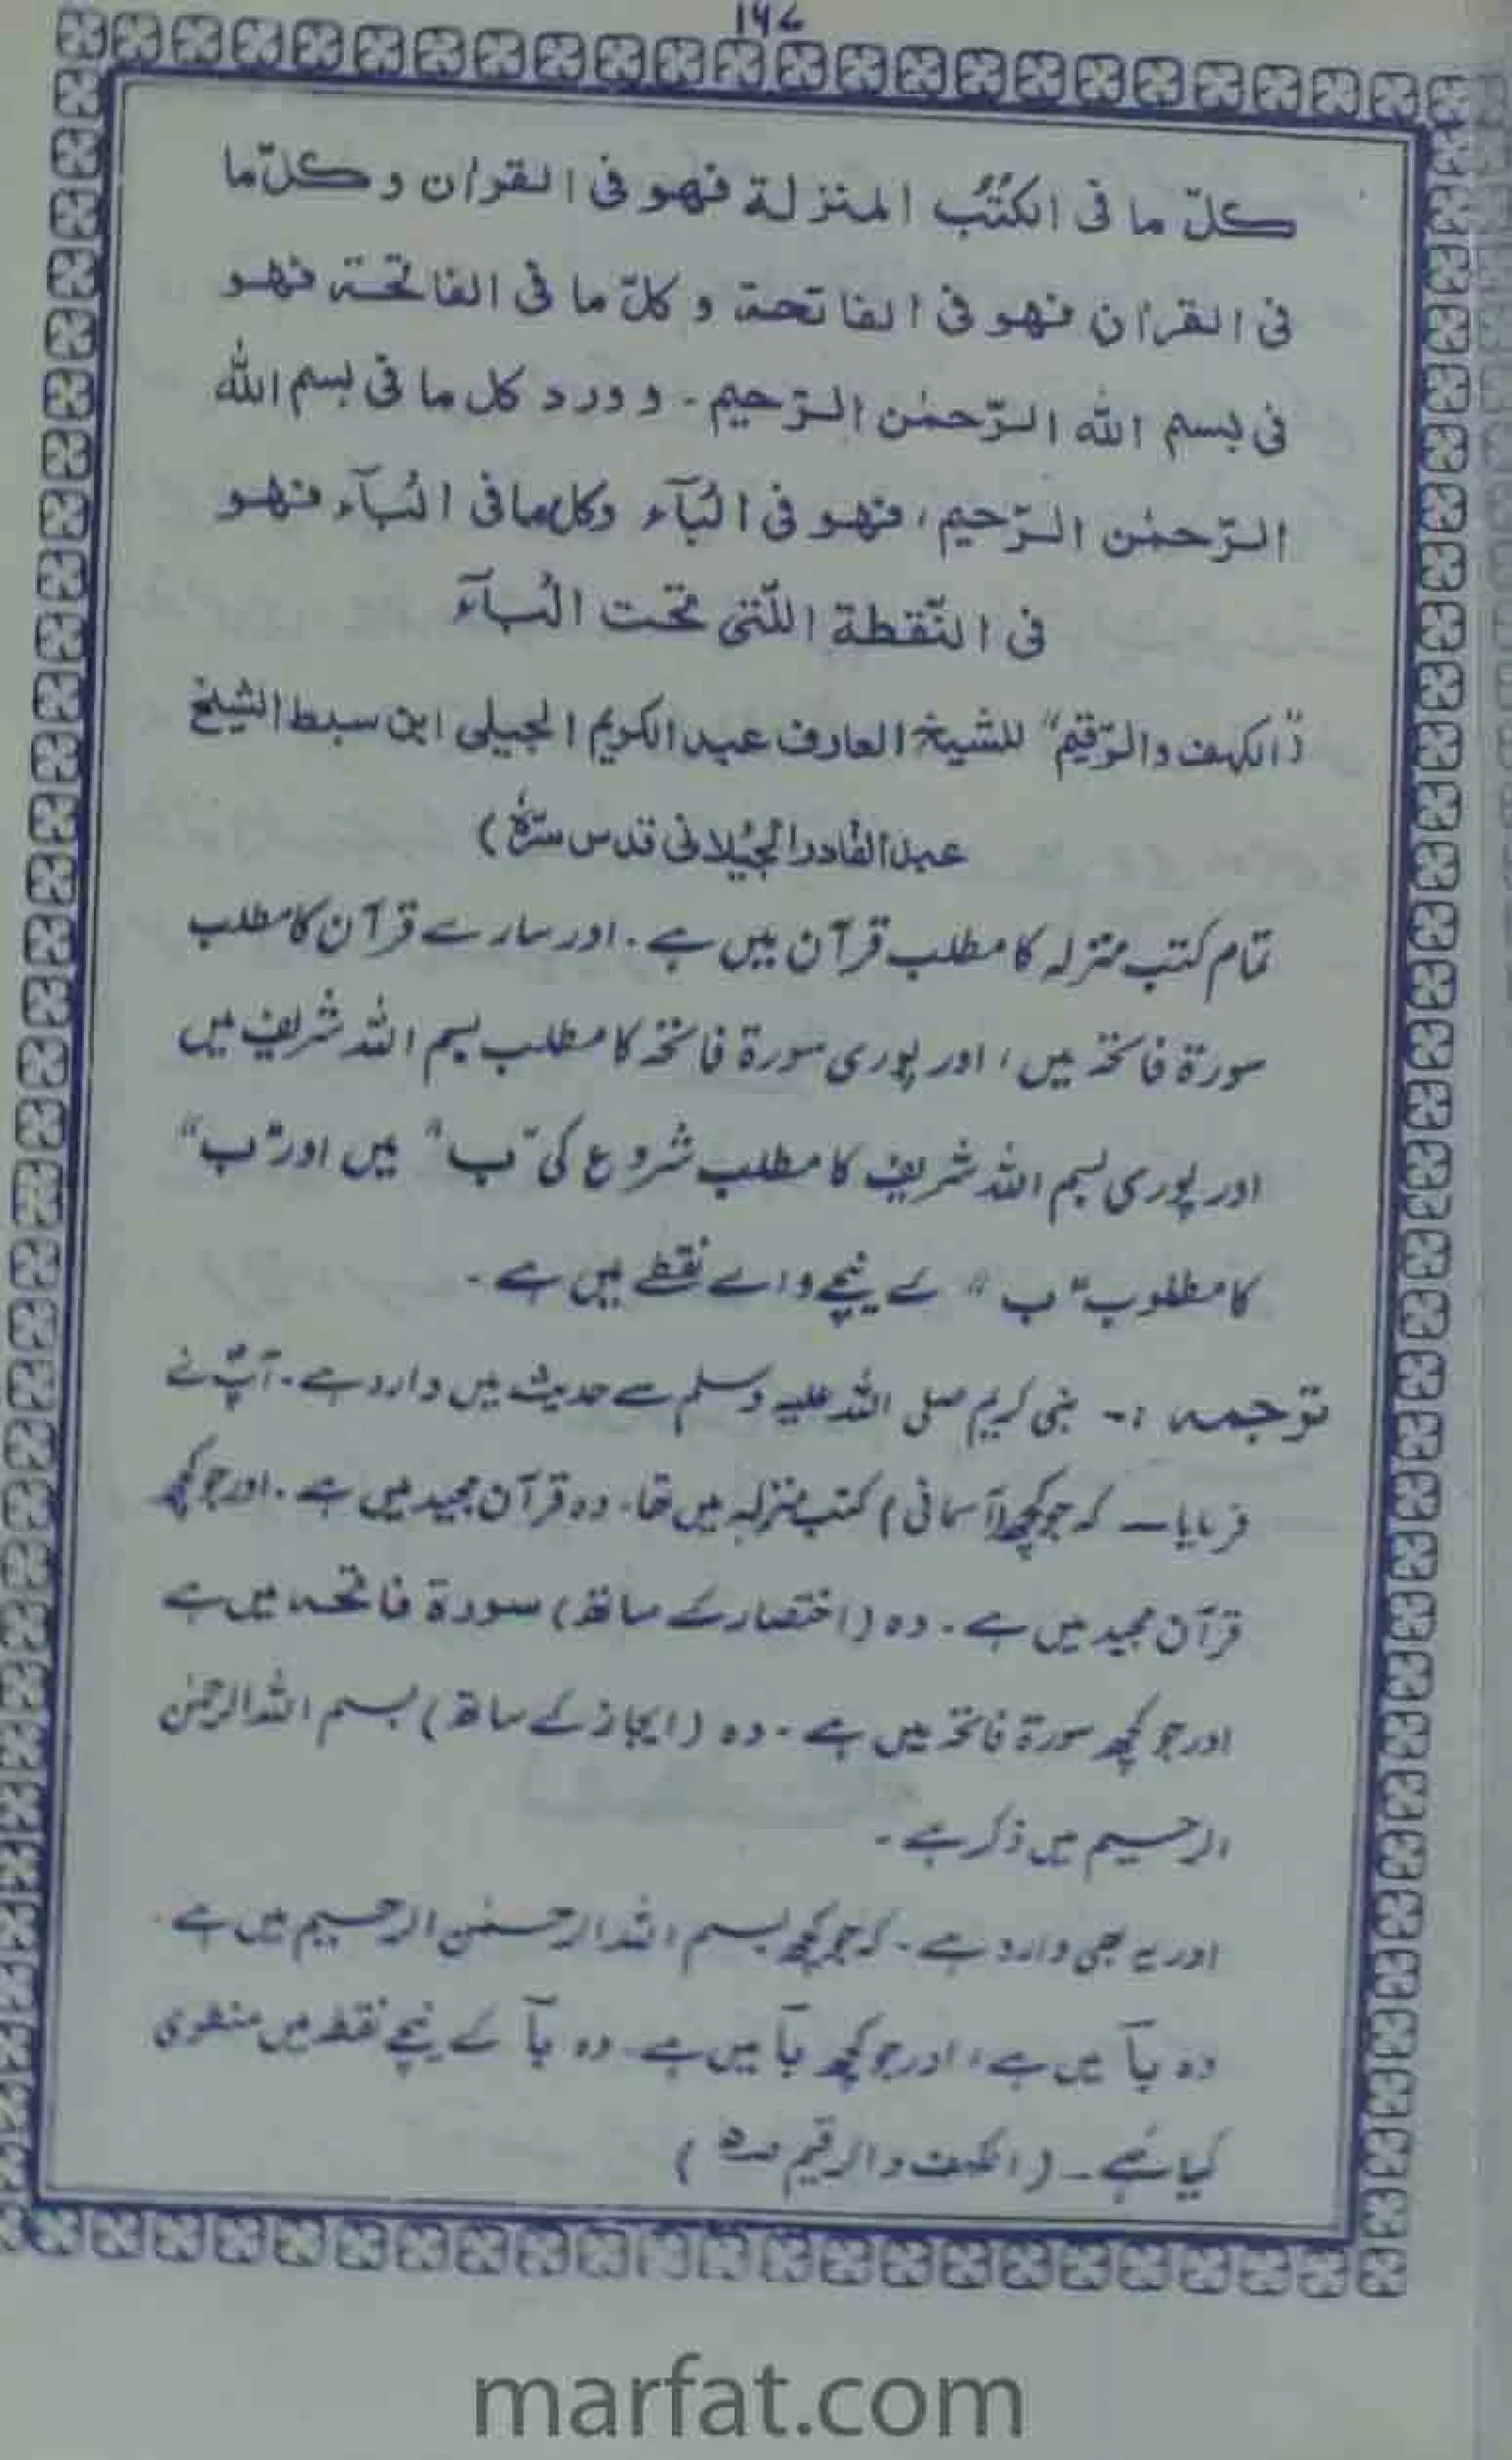 ۱۶۷
كلّ ما فى الكُتُب المنزلة فهو فى القرآن وكلّ ما
فى القرآن فهو فى الفاتحة وكلّ ما فى الفاتحة فهو
فى بسم الله الرّحمٰن الرّحيم - وورد كل ما فى بسم الله
الرّحمٰن الرّحيم، فهو فى الْبَآء وكل ما فى الْبَآء فهو
فى النّقطة اللّتى تحت الْبَآء
("الكهف والرّقيم" للشيخ العارف عبد الكريم الجيلى ابن سبط الشيخ
عبد القادر الْجيْلانى قدس سرّهٗ)
تمام کتب منزلہ کا مطلب قرآن میں ہے۔ اور سارے قرآن کا مطلب
سورۃ فاتحہ میں، اور پوری سورۃ فاتحہ کا مطلب بسم اللہ شریف میں
اور پوری بسم اللہ شریف کا مطلب شروع کی "ب" میں اور "ب"
کا مطلوب "ب" کے نیچے والے نقطے میں ہے۔
ترجمہ :- نبی کریم صلی اللہ علیہ وسلم سے حدیث میں وارد ہے۔ آپؐ نے
فرمایا — کہ جو کچھ (آسمانی) کتب منزلہ میں تھا۔ وہ قرآن مجید میں ہے۔ اور جو کچھ
قرآن مجید میں ہے۔ وہ (اختصار کے ساتھ) سورۃ فاتحہ میں ہے
اور جو کچھ سورۃ فاتحہ میں ہے۔ وہ (ایجاز کے ساتھ) بسم اللہ الرحمٰن
الرحیم میں ذکر ہے۔
اور یہ بھی وارد ہے۔ کہ جو کچھ بسم اللہ الرحمٰن الرحیم میں ہے۔
وہ بآ میں ہے، اور جو کچھ بآ میں ہے۔ وہ بآ کے نیچے نقطہ میں منطوی
کیا ہے — (الکہف والرقیم صہ ۵)
marfat.com